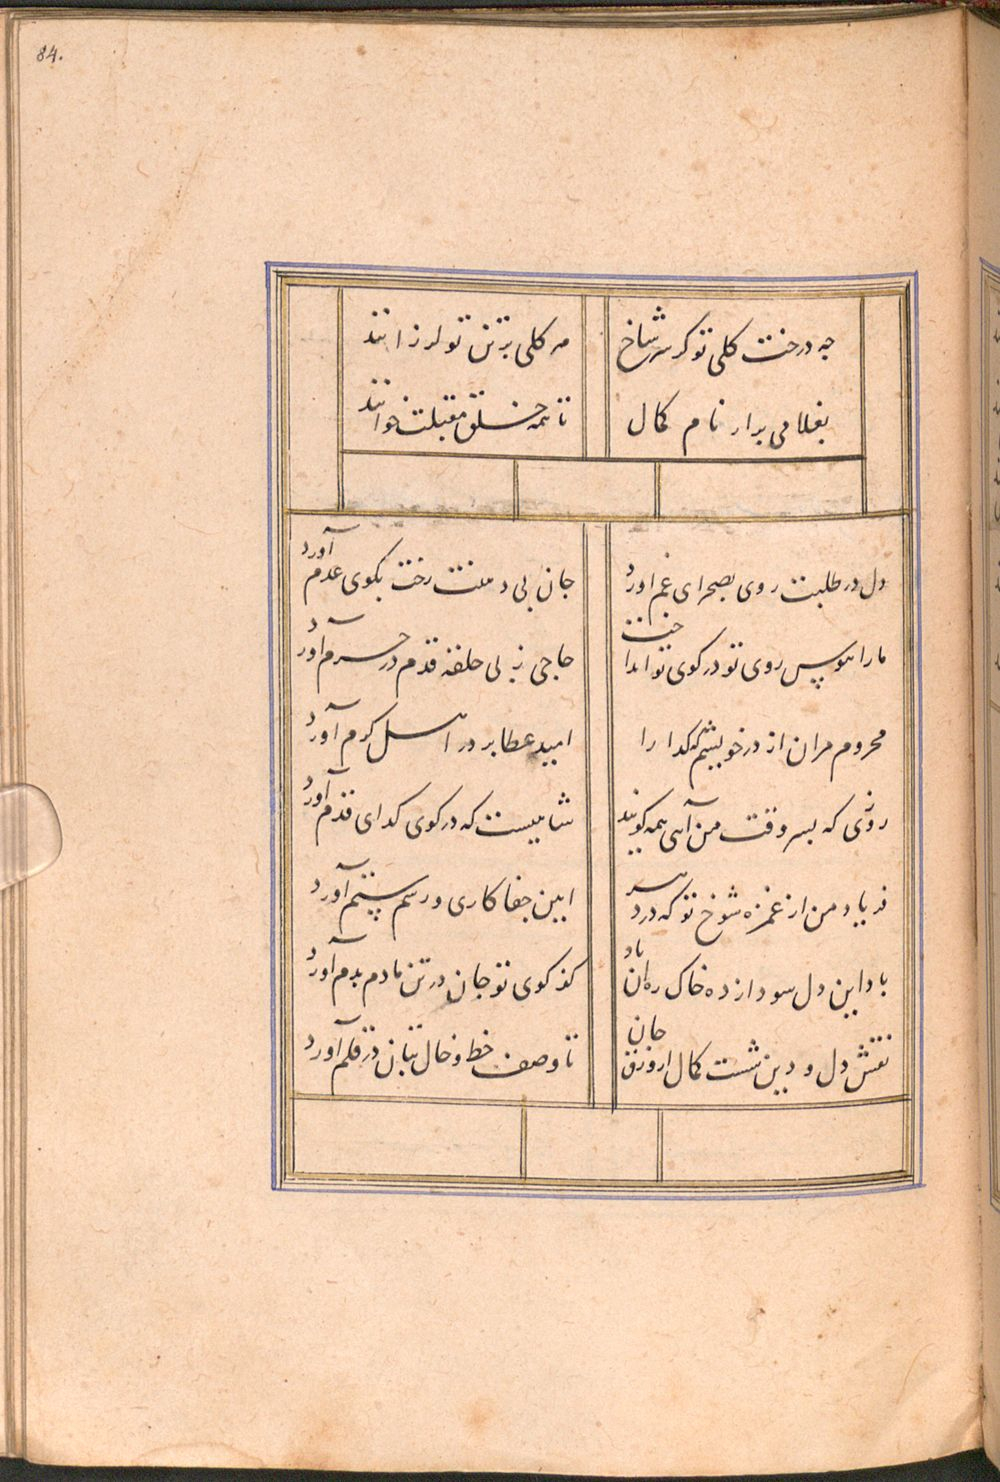 84.
چه درختت کلی تو کر سر شاخ
مه کلی بر تن تو لرزانند
بغلامی برار نام کمال
تا همه خلق مقبلت خوانند
دل در طلبت روی بصحرای غم اورد
جان بی دهنت رخت بکوی عدم آورد
مارا هوس روی تو در کوی تو انداخت
حاجی ز پی حلقه قدم در حرم آورد
محروم مران از در خویشم که کدا را
امید عطا بر در اهل کرم آورد
روزی که بسر وقت من آیی همه کویند
شاهیست که در کوی کدای قدم آورد
فریاد من از غمزه شوخ تو که در دهر
ایین جفا کاری و رسم ستم آورد
باد این دل سودازده خاک ره ان باد
کز کوی تو جان در تن مادم بدم آورد
نقش دل و دین شست کمال از ورق جان
تا وصف خط و خال بتان در قلم آورد